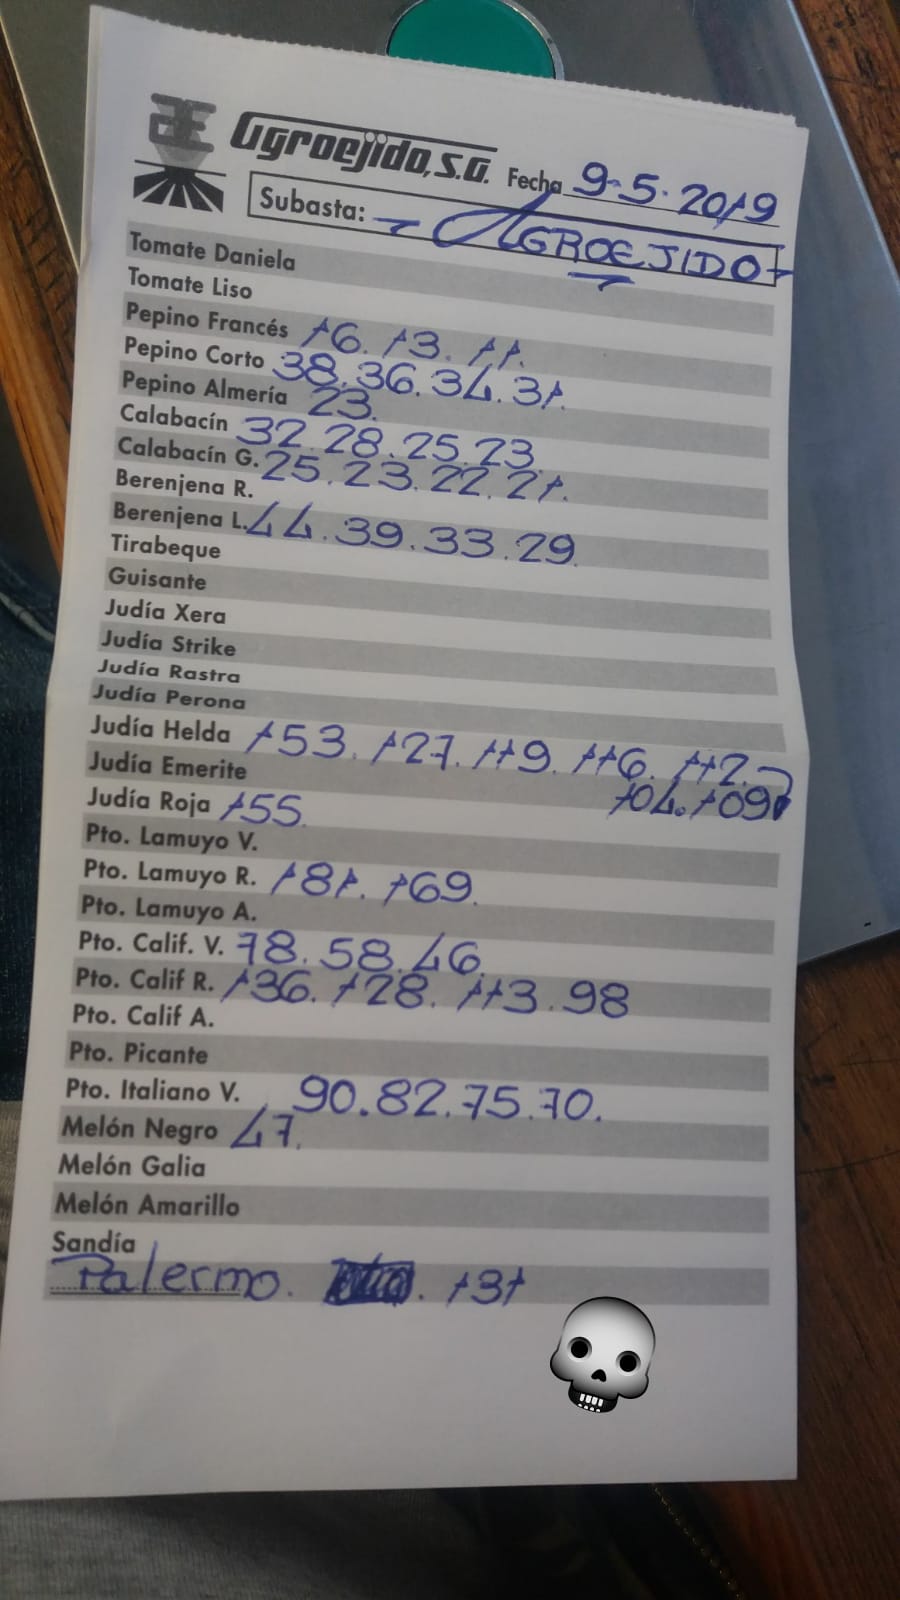 Agroejido, S.A. Fecha 9-5-2019
Subasta: - AGROEJIDO -
Tomate Daniela
Tomate Liso
Pepino Francés 16. 13. 11.
Pepino Corto 38. 36. 34. 31.
Pepino Almería 23.
Calabacín 32. 28. 25. 23.
Calabacín G. 25. 23. 22. 21.
Berenjena R.
Berenjena L. 44. 39. 33. 29.
Tirabeque
Guisante
Judía Xera
Judía Strike
Judía Rastra
Judía Perona
Judía Helda 153. 127. 119. 116. 112.
104. 109
Judía Emerite
Judía Roja 155.
Pto. Lamuyo V.
Pto. Lamuyo R. 181. 169.
Pto. Lamuyo A.
Pto. Calif. V. 78. 58. 46.
Pto. Calif R. 136. 128. 113. 98
Pto. Calif A.
Pto. Picante
Pto. Italiano V. 90. 82. 75. 70.
Melón Negro 47.
Melón Galia
Melón Amarillo
Sandía
Palermo. 131